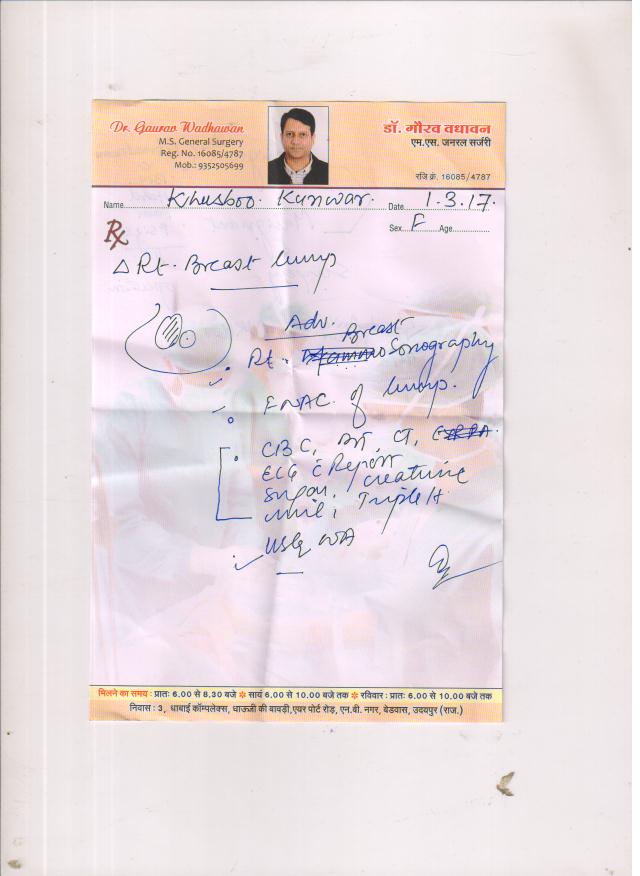 Dr. Gaurav Wadhawan
M.S. General Surgery
Reg. No. 16085/4787
Mob.: 9352505699
डॉ. गौरव वधावन
एम.एस. जनरल सर्जरी
रजि क्रं. 16085/4787
Name Khusboo. Kunwar. Date 1.3.17.
Sex F Age
Rx
Δ Rt. Breast lump
Adv.
Breast
Rt. Sonography
FNAC of lump.
CBC, BT, CT,
ECG c̄ Report
Sugar, creatinine
Triple H
USG WA
मिलने का समय : प्रातः 6.00 से 8.30 बजे ✽ सायं 6.00 से 10.00 बजे तक ✽ रविवार : प्रातः 6.00 से 10.00 बजे तक
निवास : 3, धाबाई कॉम्पलेक्स, धाऊजी की बावड़ी,एयर पोर्ट रोड़, एन.बी. नगर, बेडवास, उदयपुर (राज.)